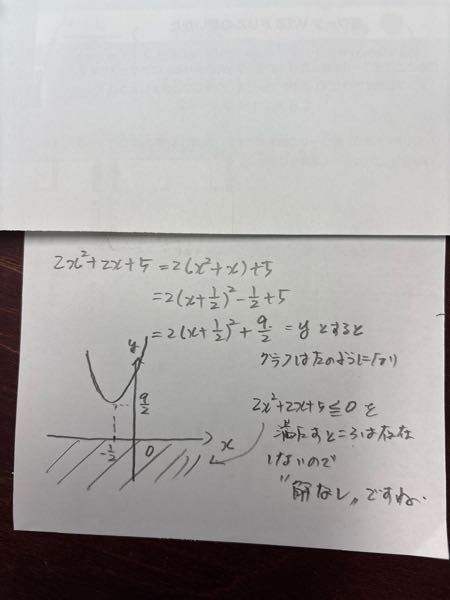 2x²+2x+5 = 2(x²+x)+5
= 2(x+1/2)² - 1/2 + 5
= 2(x+1/2)² + 9/2 = y とすると
グラフは左のようになり
y
9/2
-1/2
0
x
2x²+2x+5≦0を
満たすところは存在
しないので
"解なし"ですね。